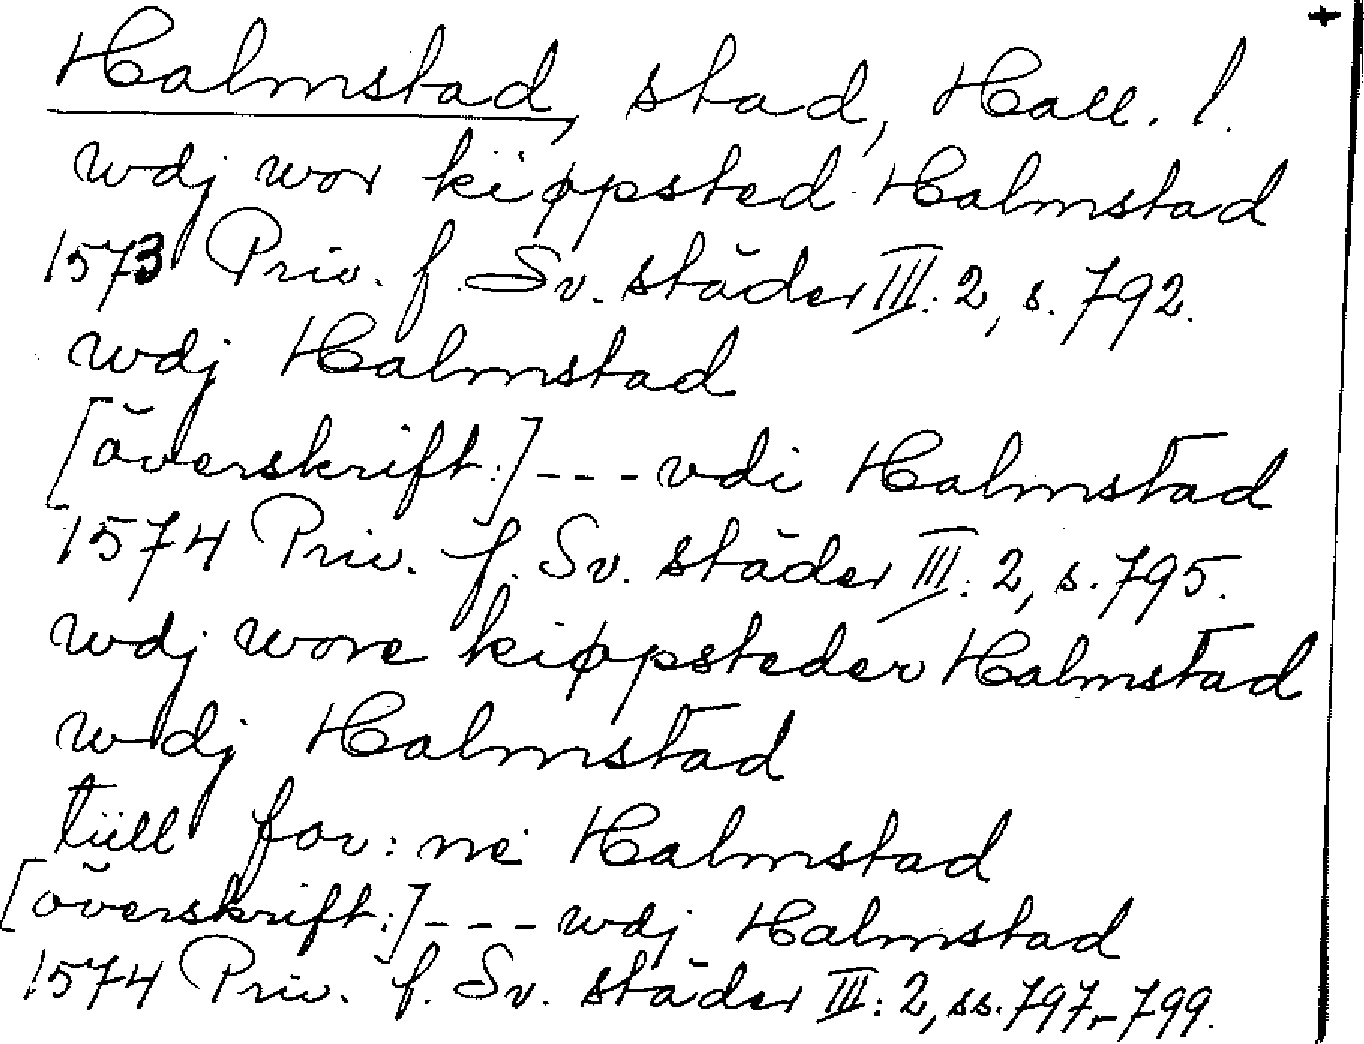 +
Halmstad, stad, Hall. l.
wdj wor kiøpsted Halmstad
1573 Priv. f. Sv. städer III: 2, s. 792.
wdj Halmstad
[överskrift:] --- vdi Halmstad
1574 Priv. f. Sv. städer III: 2, s. 795.
wdj wore kiøpsteder Halmstad
wdj Halmstad
tüll for:ne Halmstad
[överskrift:] --- wdj Halmstad
1574 Priv. f. Sv. städer III: 2, ss. 797-799.